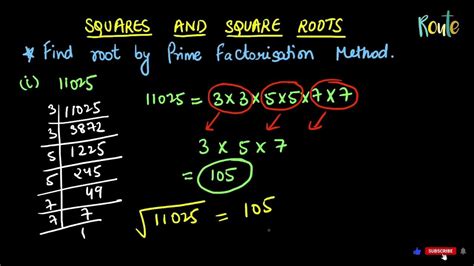 SQUARES AND SQUARE ROOTS
Route
* Find root by Prime Factorisation Method.
(i) 11025
3 | 11025
3 | 3872
5 | 1225
5 | 245
7 | 49
7 | 7
1
11025 = 3 × 3 × 5 × 5 × 7 × 7
3 × 5 × 7
= 105
√11025 = 105
SUBSCRIBE